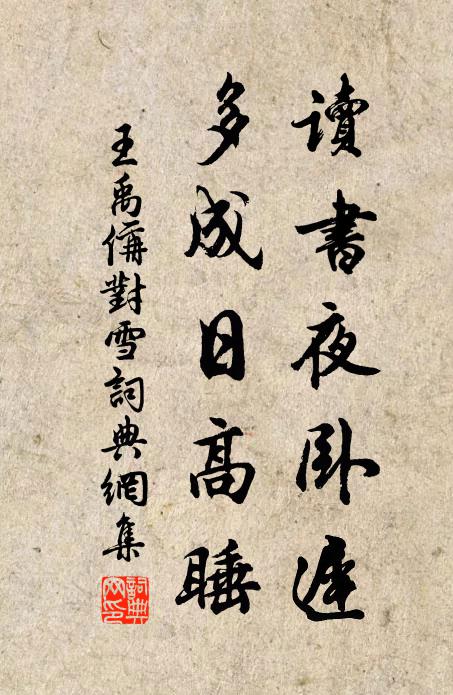 讀書夜卧遲
多成日高睡
王禹偁對雪詞典網集
詞典
网印